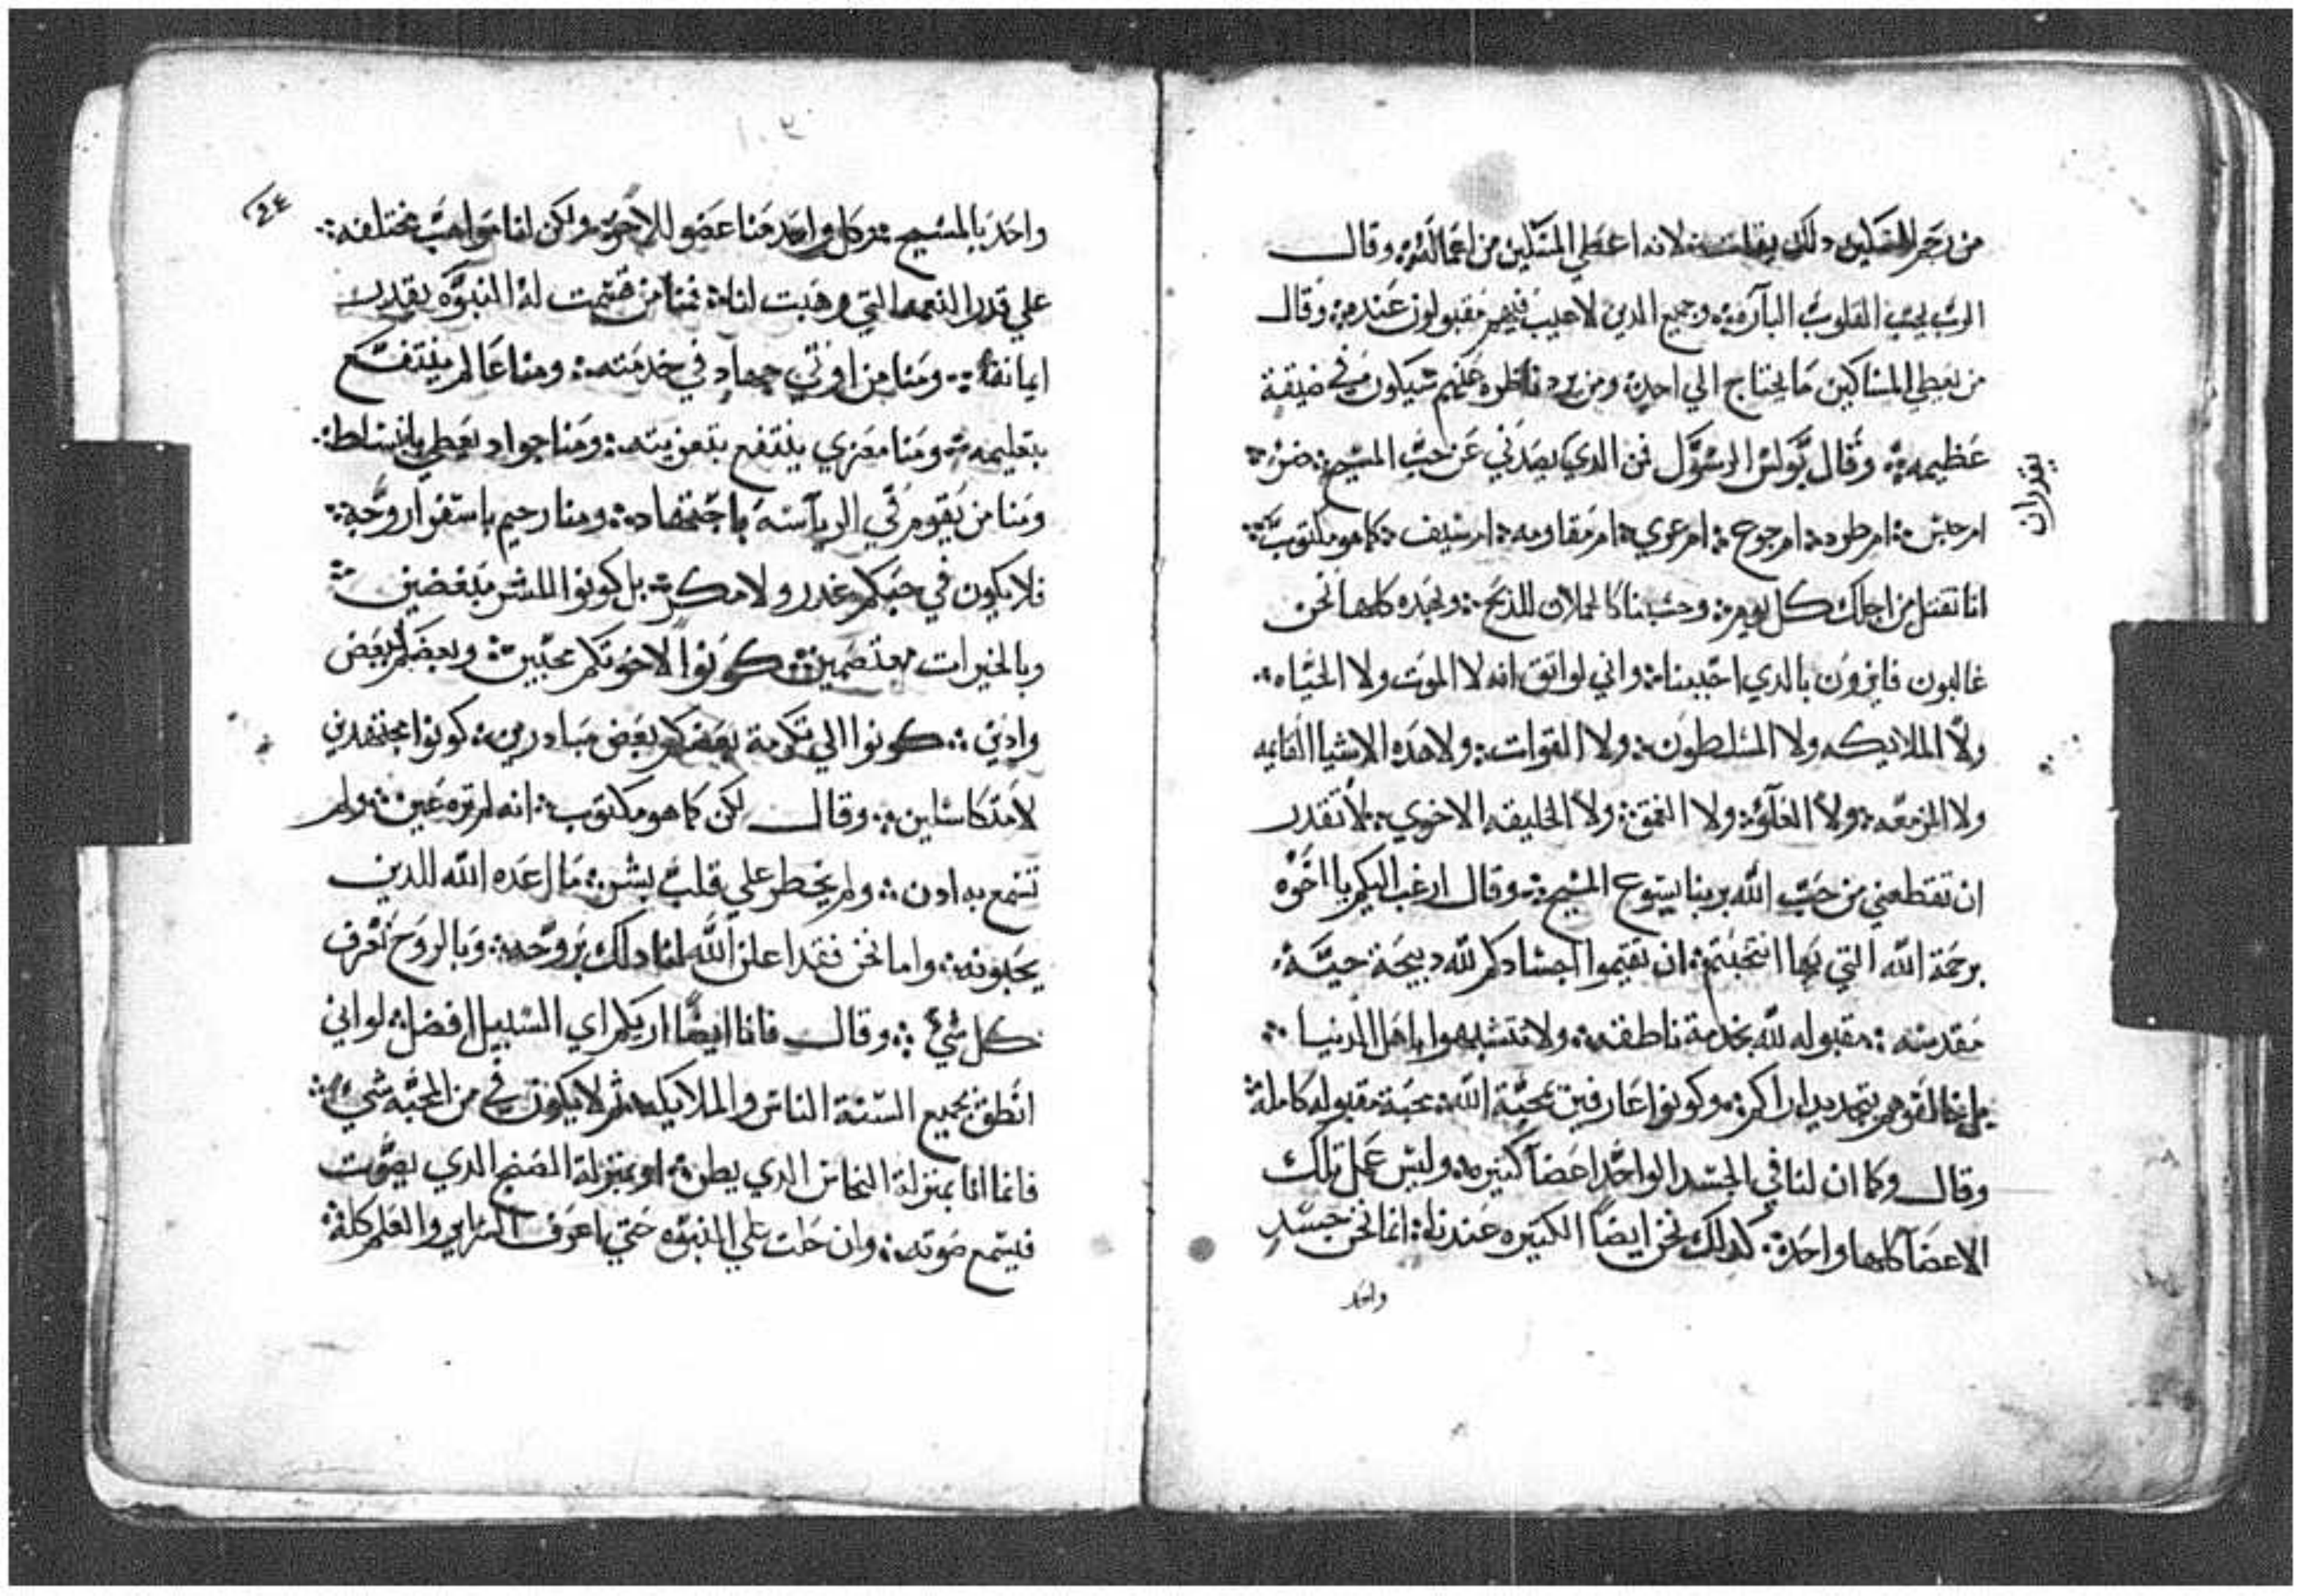 من رحم المسكين دلك يفلت لانه اعطي المسكين من اعماله وقال
الرب يحب القلوب الباره وجميع الدين لا عيب فيهم مقبولون عنده وقال
من يعطي المساكين ما يحتاج الي احد ومن يرد ناظره عنهم سيكون في ضيقة
عظيمه وقال بولس الرسول فمن الدي يصدني عن حب المسيح ضر
ام حبس ام طرد ام جوع ام عري ام مقاومه ام سيف كما هو مكتوب
اننا نقتل من اجلك كل يوم وحسبنا كالحملان للدبح وبهده كلها نحن
غالبون فايزون بالدي احبنا واني لواتق انه لا الموت ولا الحياه
ولا الملايكه ولا المسلطون ولا القوات ولا هده الاشيا القايمه
ولا المزمعه ولا العلو ولا العمق ولا الخليقه الاخري لا تقدر
ان تقطعني من حب الله بربنا يسوع المسيح وقال ارغب اليكم يا اخوه
برحمة الله التي بها انتخبتم ان تقيموا اجسادكم لله دبيحة حية
مقدسه مقبوله لله بخدمة ناطقه ولا تتشبهوا باهل الدنيا
بل خالفوهم بتجديد اراكم وكونوا عارفين بمحبة الله محبة مقبوله كاملة
وقال وكما ان لنا في الجسد الواحد اعضآ كتيره وليس عمل تلك
الاعضآ كلها واحد كدلك نحن ايضا الكتيره عندنا انما نحن جسد
واحد
يقدران
٤٤
واحد بالمسيح وكل واحد منا عضو للاخوه ولكن لنا مواهب مختلفه
علي قدر النعمه التي وهبت لنا فمنا من قسمت له النبوه بقدر
ايمانه ومنا من اوتي جهاد في خدمته ومنا عالم ينتفع
بتعليمه ومنا معزي ينتفع بتعزيته ومنا جواد يعطي بانبساط
ومنا من يقوم في الرياسه باجتهاد ومنا رحيم باسفرار وجه
فلا يكون في حبكم غدر ولا مكر بل كونوا للشر مبغضين
وبالخيرات معتصمين كونوا لاخوتكم محبين وبعضكم لبعض
وادين كونوا الي تكرمة بعضكم بعض مبادرين كونوا مجتهدين
لا متكاسلين وقال لكن كما هو مكتوب انه لم تره عين ولم
تسمع به ادن ولم يخطر علي قلب بشر ما اعده الله للدين
يحبونه واما نحن فقد اعلن الله لنا دلك بروحه وبالروح نعرف
كل شي وقال فانا ايضا اريكم اي السبيل افضل لو اني
انطق بجميع السنة الناس والملايكه تم لا يكون في من المحبه شي
فانما انا بمنزلة النحاس الدي يطن او بمنزلة الصنج الدي يصوت
فيسمع صوته وان حلت علي النبوه حتي اعرف السراير والعلم كله